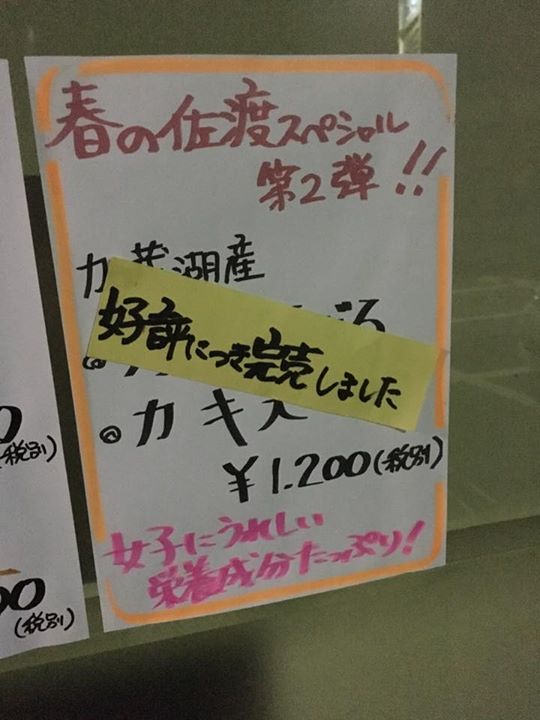 春の佐渡スペシャル
第2弾!!
加茂湖産
好評につき完売しました
◎カキ
¥1.200(税別)
女子にうれしい
栄養成分たっぷり!
(税別)
00
(税別)